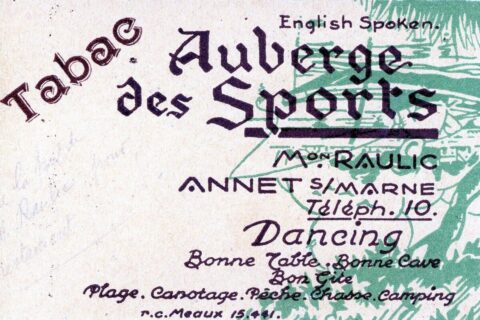 English Spoken.
Tabac
Auberge
des Sports
Mon RAULIC
ANNET S/MARNE
Téléph. 10.
Dancing
Bonne Table. Bonne Cave
Bon Gîte
Plage. Canotage. Pêche. Chasse. Camping
r.c. Meaux 15.441.